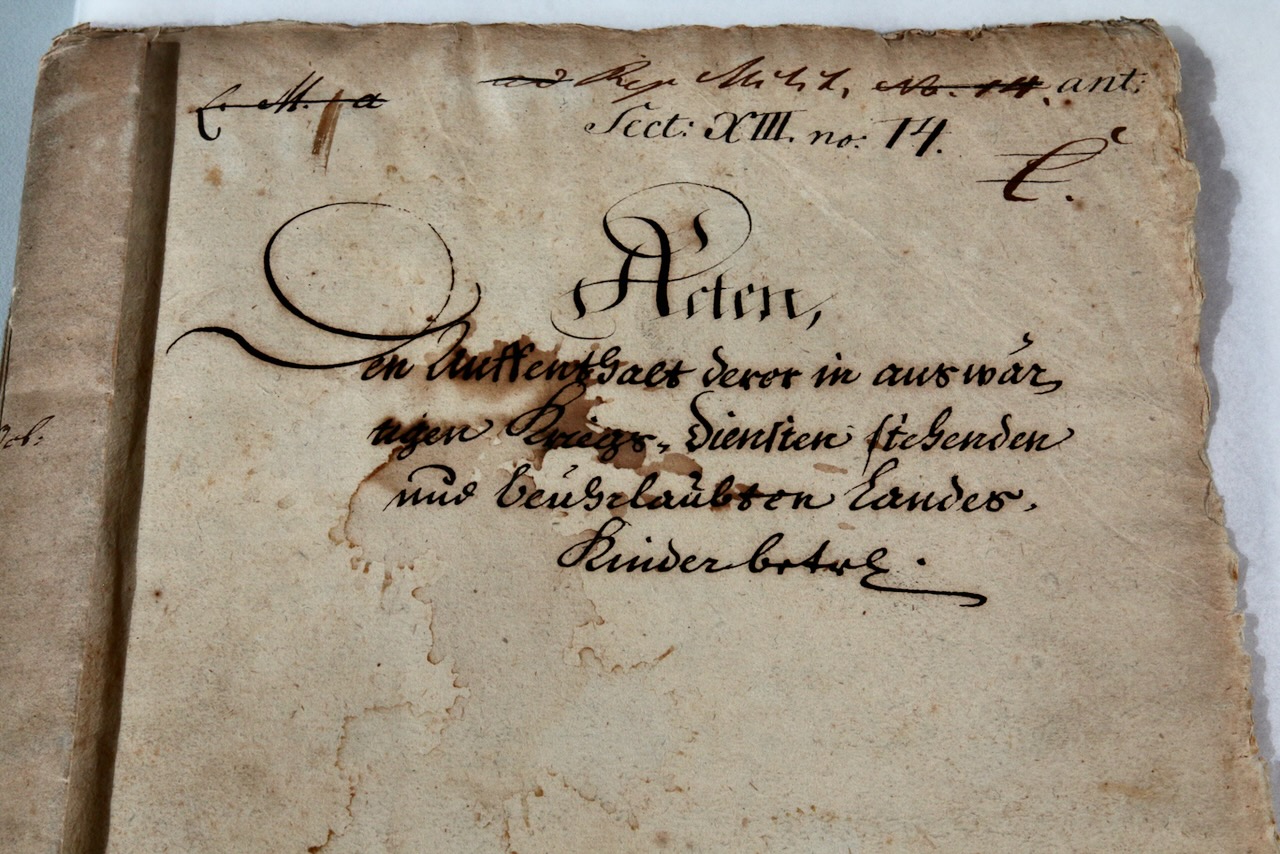 ad Rep Milit. No. 14. ant:
Sect: XIII. no: 14.
Acten,
Den Auffenthalt derer in auswär-
tigen Kriegs-Diensten stehenden
und beuhrlaubten Landes-
Kinder betrl.